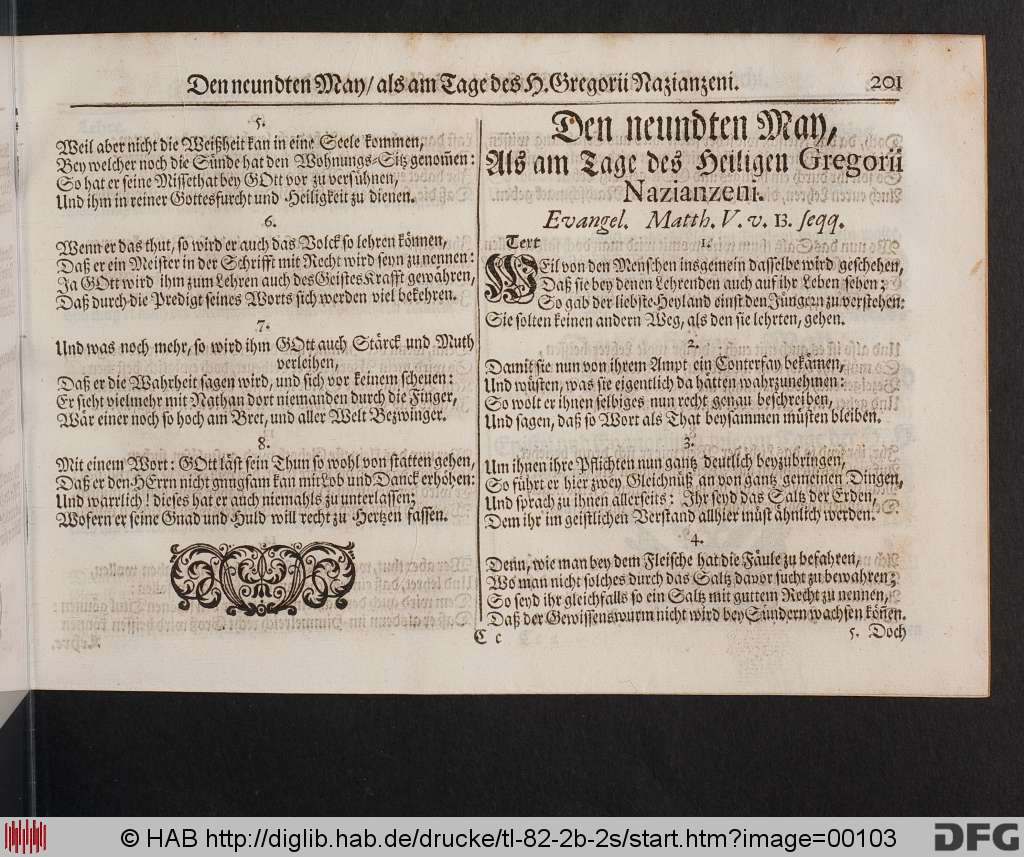 Den neundten May/ als am Tage des H. Gregorii Nazianzeni.
201
5.
Weil aber nicht die Weißheit kan in eine Seele kommen,
Bey welcher noch die Sünde hat den Wohnungs-Sitz genom̃en:
So hat er seine Missethat bey GOtt vor zu versühnen,
Und ihm in reiner Gottesfurcht und Heiligkeit zu dienen.
6.
Wenn er das thut, so wird er auch das Volck so lehren können,
Daß er ein Meister in der Schrifft mit Recht wird seyn zu nennen:
Ja GOtt wird ihm zum Lehren auch des Geistes Krafft gewähren,
Daß durch die Predigt seines Worts sich werden viel bekehren.
7.
Und was noch mehr, so wird ihm GOtt auch Stärck und Muth
verleihen,
Daß er die Wahrheit sagen wird, und sich vor keinem scheuen:
Er sieht vielmehr mit Nathan dort niemanden durch die Finger,
Wär einer noch so hoch am Bret, und aller Welt Bezwinger.
8.
Mit einem Wort: GOtt läst sein Thun so wohl von statten gehen,
Daß er den HErrn nicht gnugsam kan mit Lob und Danck erhöhen:
Und warrlich! dieses hat er auch niemahls zu unterlassen;
Wofern er seine Gnad und Huld will recht zu Hertzen fassen.
Den neundten May,
Als am Tage des Heiligen Gregorii
Nazianzeni.
Evangel. Matth. V. v. 13. seqq.
Text 1.
WEil von den Menschen insgemein dasselbe wird geschehen,
Daß sie bey denen Lehrenden auch auf ihr Leben sehen;
So gab der liebste Heyland einst den Jüngern zu verstehen:
Sie solten keinen andern Weg, als den sie lehrten, gehen.
2.
Damit sie nun von ihrem Ampt ein Conterfay bekämen,
Und wüsten, was sie eigentlich da hätten wahrzunehmen:
So wolt er ihnen selbiges nun recht genau beschreiben,
Und sagen, daß so Wort als That beysammen müsten bleiben.
3.
Um ihnen ihre Pflichten nun gantz deutlich beyzubringen,
So führt er hier zwey Gleichnüß an von gantz gemeinen Dingen,
Und sprach zu ihnen allerseits: Ihr seyd das Saltz der Erden,
Dem ihr im geistlichen Verstand allhier müst ähnlich werden.
4.
Denn, wie man bey dem Fleische hat die Fäule zu befahren,
Wo man nicht solches durch das Saltz davor sucht zu bewahren;
So seyd ihr gleichfalls so ein Saltz mit guttem Recht zu nennen,
Daß der Gewissenswurm nicht wird bey Sündern wachsen kön̄en.
C c
5. Doch
© HAB http://diglib.hab.de/drucke/tl-82-2b-2s/start.htm?image=00103
DFG